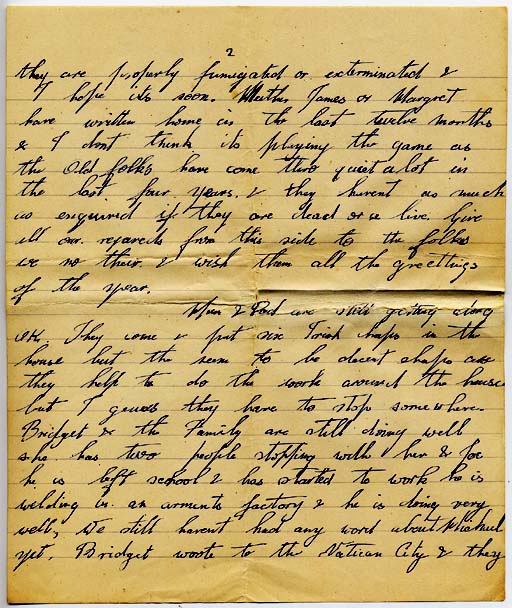 2
they are properly fumigated or exterminated &
I hope its soon. Neither James or Margret
have written home in the last twelve months
& I dont think its playing the game as
the old folks have come thro quiet a lot in
the last four years. & they havent as much
as enquired if they are dead or a live. Give
all our regards from this side to the folks
we no their. & wish them all the greettings
of the year.
Mum & Dad are still getting along
ok. They come & put six Irish chaps in the
house but the seem to be decent chaps and
they help to do the work around the house
but I geuess they have to stop somewhere.
Bridget & the Family are still doing well
she has two people stopping with her & Joe
he is left school & has started to work he is
wilding in an arments factory & he is doing very
well, We still havent had any word about Michael
yet, Bridget wrote to the Vatican City & they